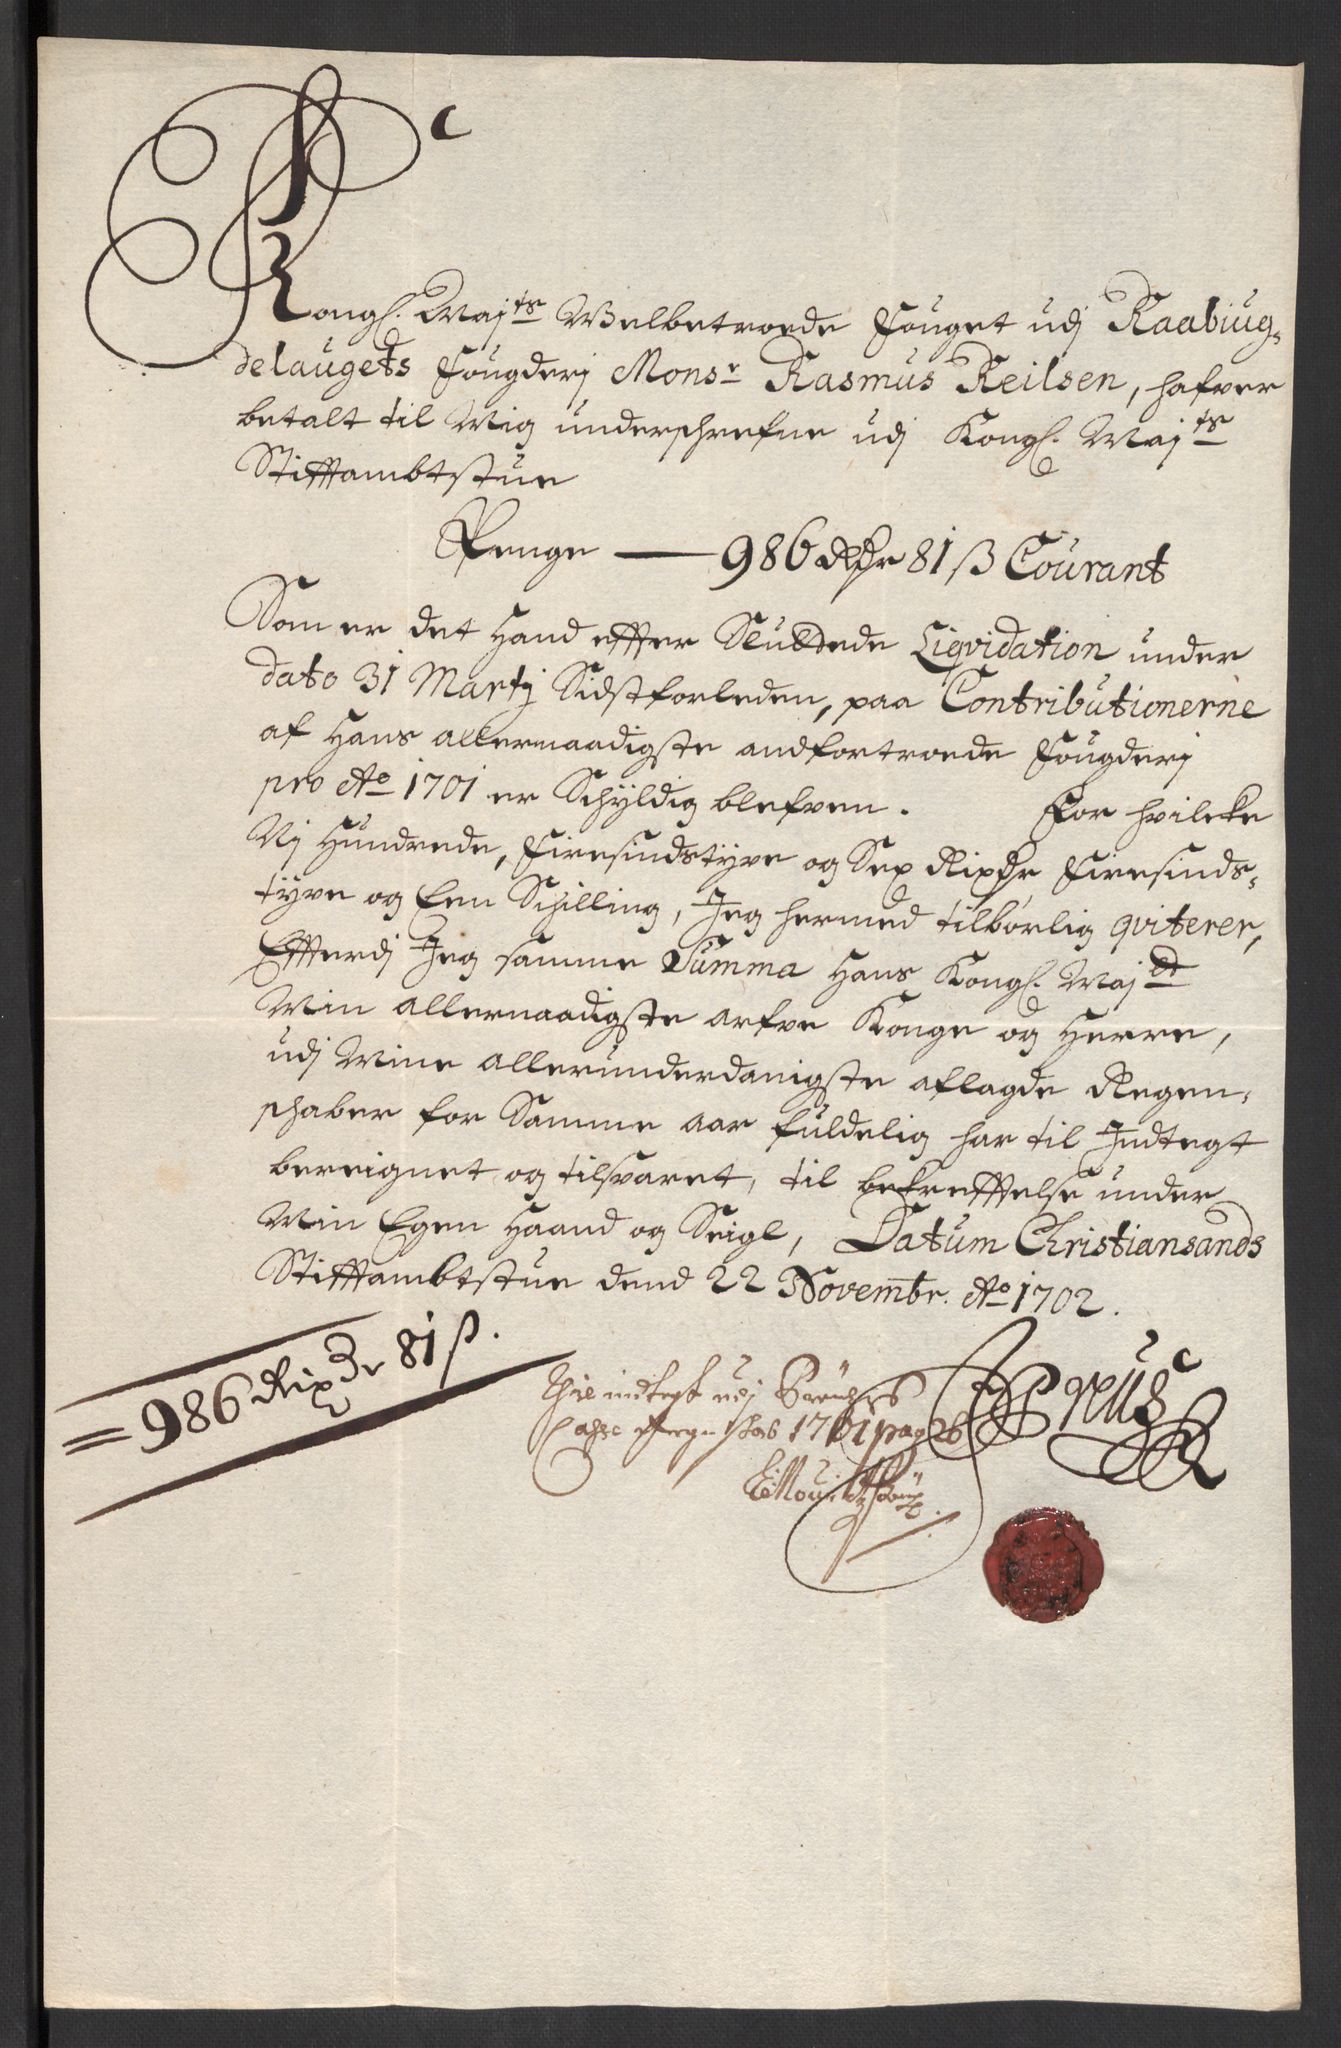 Kongl. Maj:ts Welbetroede Fouget udj Raabiug-
delaugets Fougderj Monsr Rasmus Keilsen, hafver
betalt til Mig underschrefne udj Kongl. Maj:ts
Stifftambtstue
Penge — 986 Rdr 81 ß Courant
Som er det Hand effter Sluttede Liqvidation under
dato 31 Martij Sidstforleden, paa Contributionerne
af Hans allernaadigste andfortroede Fougderj
pro Ao 1701 er Schyldig blefven. For hvilcke
Nj Hundrede, Firesindstyve og Sex Rixdr Firesinds-
tyve og Een Schilling, Jeg hermed tilbørlig qviterer,
Effterdj Jeg samme Summa Hans Kongl. Maj:dt
Min allernaadigste arfve Konge og Herre,
udj Mine allerunderdanigste aflagde Regen-
schaber for Samme aar fuldelig har til Indtegt
bereignet og tilsvaret, til bekrefftelse under
Min Egen Haand og Seigl, Datum Christiansands
Stifftambtstue dend 22 Novembr. Ao 1702.
= 986 Rixdr 81 ß.
Til indtegt udj
Casse Regnschab 1701 pag 26